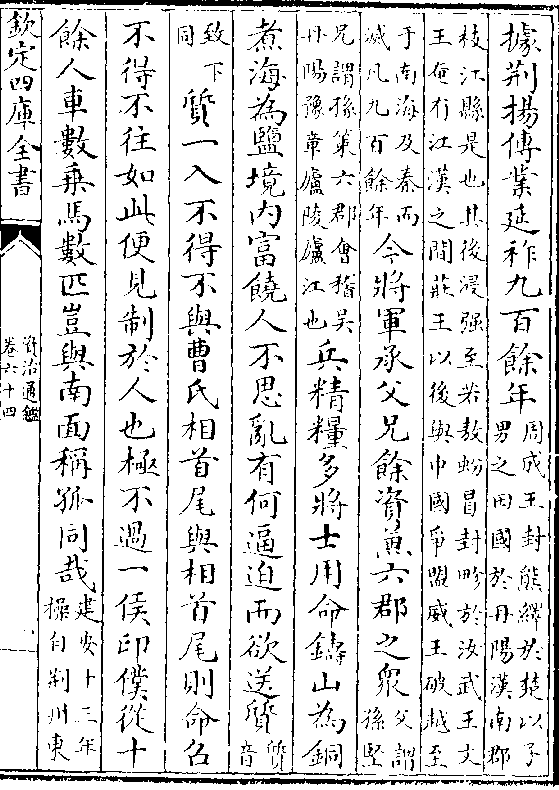 據荆揚傳業延祚九百餘年周成王封熊繹於楚以子男之田國於丹陽漢南郡
枝江縣是也其後浸强至若敖蚡冒封畛於汝武王文王奄有江漢之間莊王以後與中國爭盟威王破越至
于南海及秦而滅凡九百餘年今將軍承父兄餘資兼六郡之衆父謂孫堅
兄謂孫策六郡會稽吴丹陽豫章廬陵廬江也兵精糧多將士用命鑄山為銅
煮海為鹽境内富饒人不思亂有何逼迫而欲送質質音
致下同質一入不得不與曹氏相首尾與相首尾則命召
不得不往如此便見制於人也極不過一侯印僕從十
餘人車數乗馬數匹豈與南面稱孤同哉建安十三年操自荆州東
欽定四庫全書
資治通鑑
卷六十四